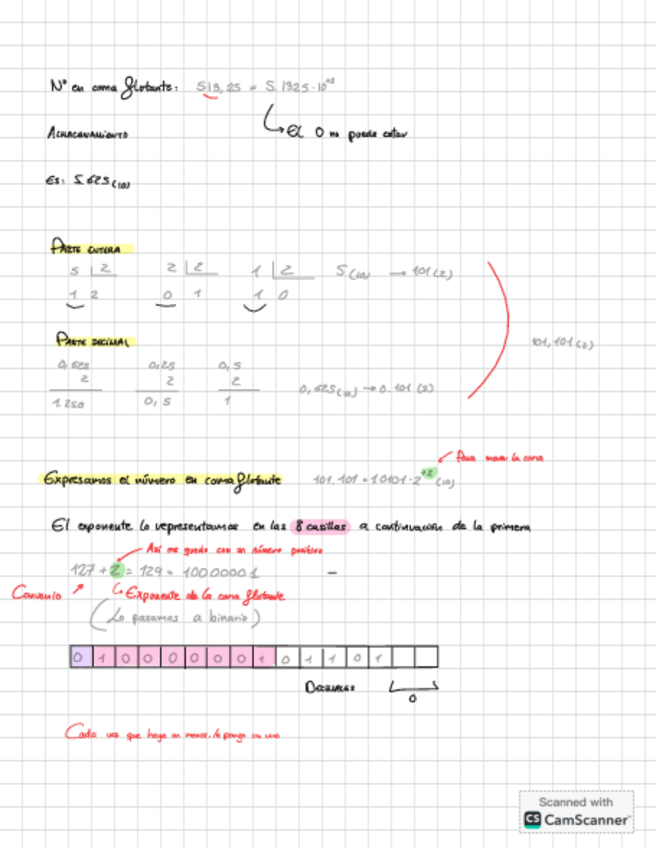 Nº en coma flotante: 513,25 = 5.1325·10⁺²
El 0 no puede estar
ALMACENAMIENTO
Ej: 5.625(10)
PARTE ENTERA
5 | 2   2 | 2   1 | 2   5(10) → 101(2)
1 2   0 1   1 0
PARTE DECIMAL
101,101(2)
0,625   0,25   0,5
2   2   2   0,625(10) → 0.101(2)
1.250   0,5   1
Para mover la coma
Expresamos el número en coma flotante   101.101 = 1.0101·2⁺²(10)
El exponente lo representamos en las 8 casillas a continuación de la primera
Así me quedo con un número positivo
127 + 2 = 129 = 10000001   –
Convenio   Exponente de la coma flotante
(Lo pasamos a binario)
0 1 0 0 0 0 0 0 1 0 1 1 0 1
DECIMALES   0
Cada vez que haya un menos, le pongo un uno
Scanned with
CS CamScanner